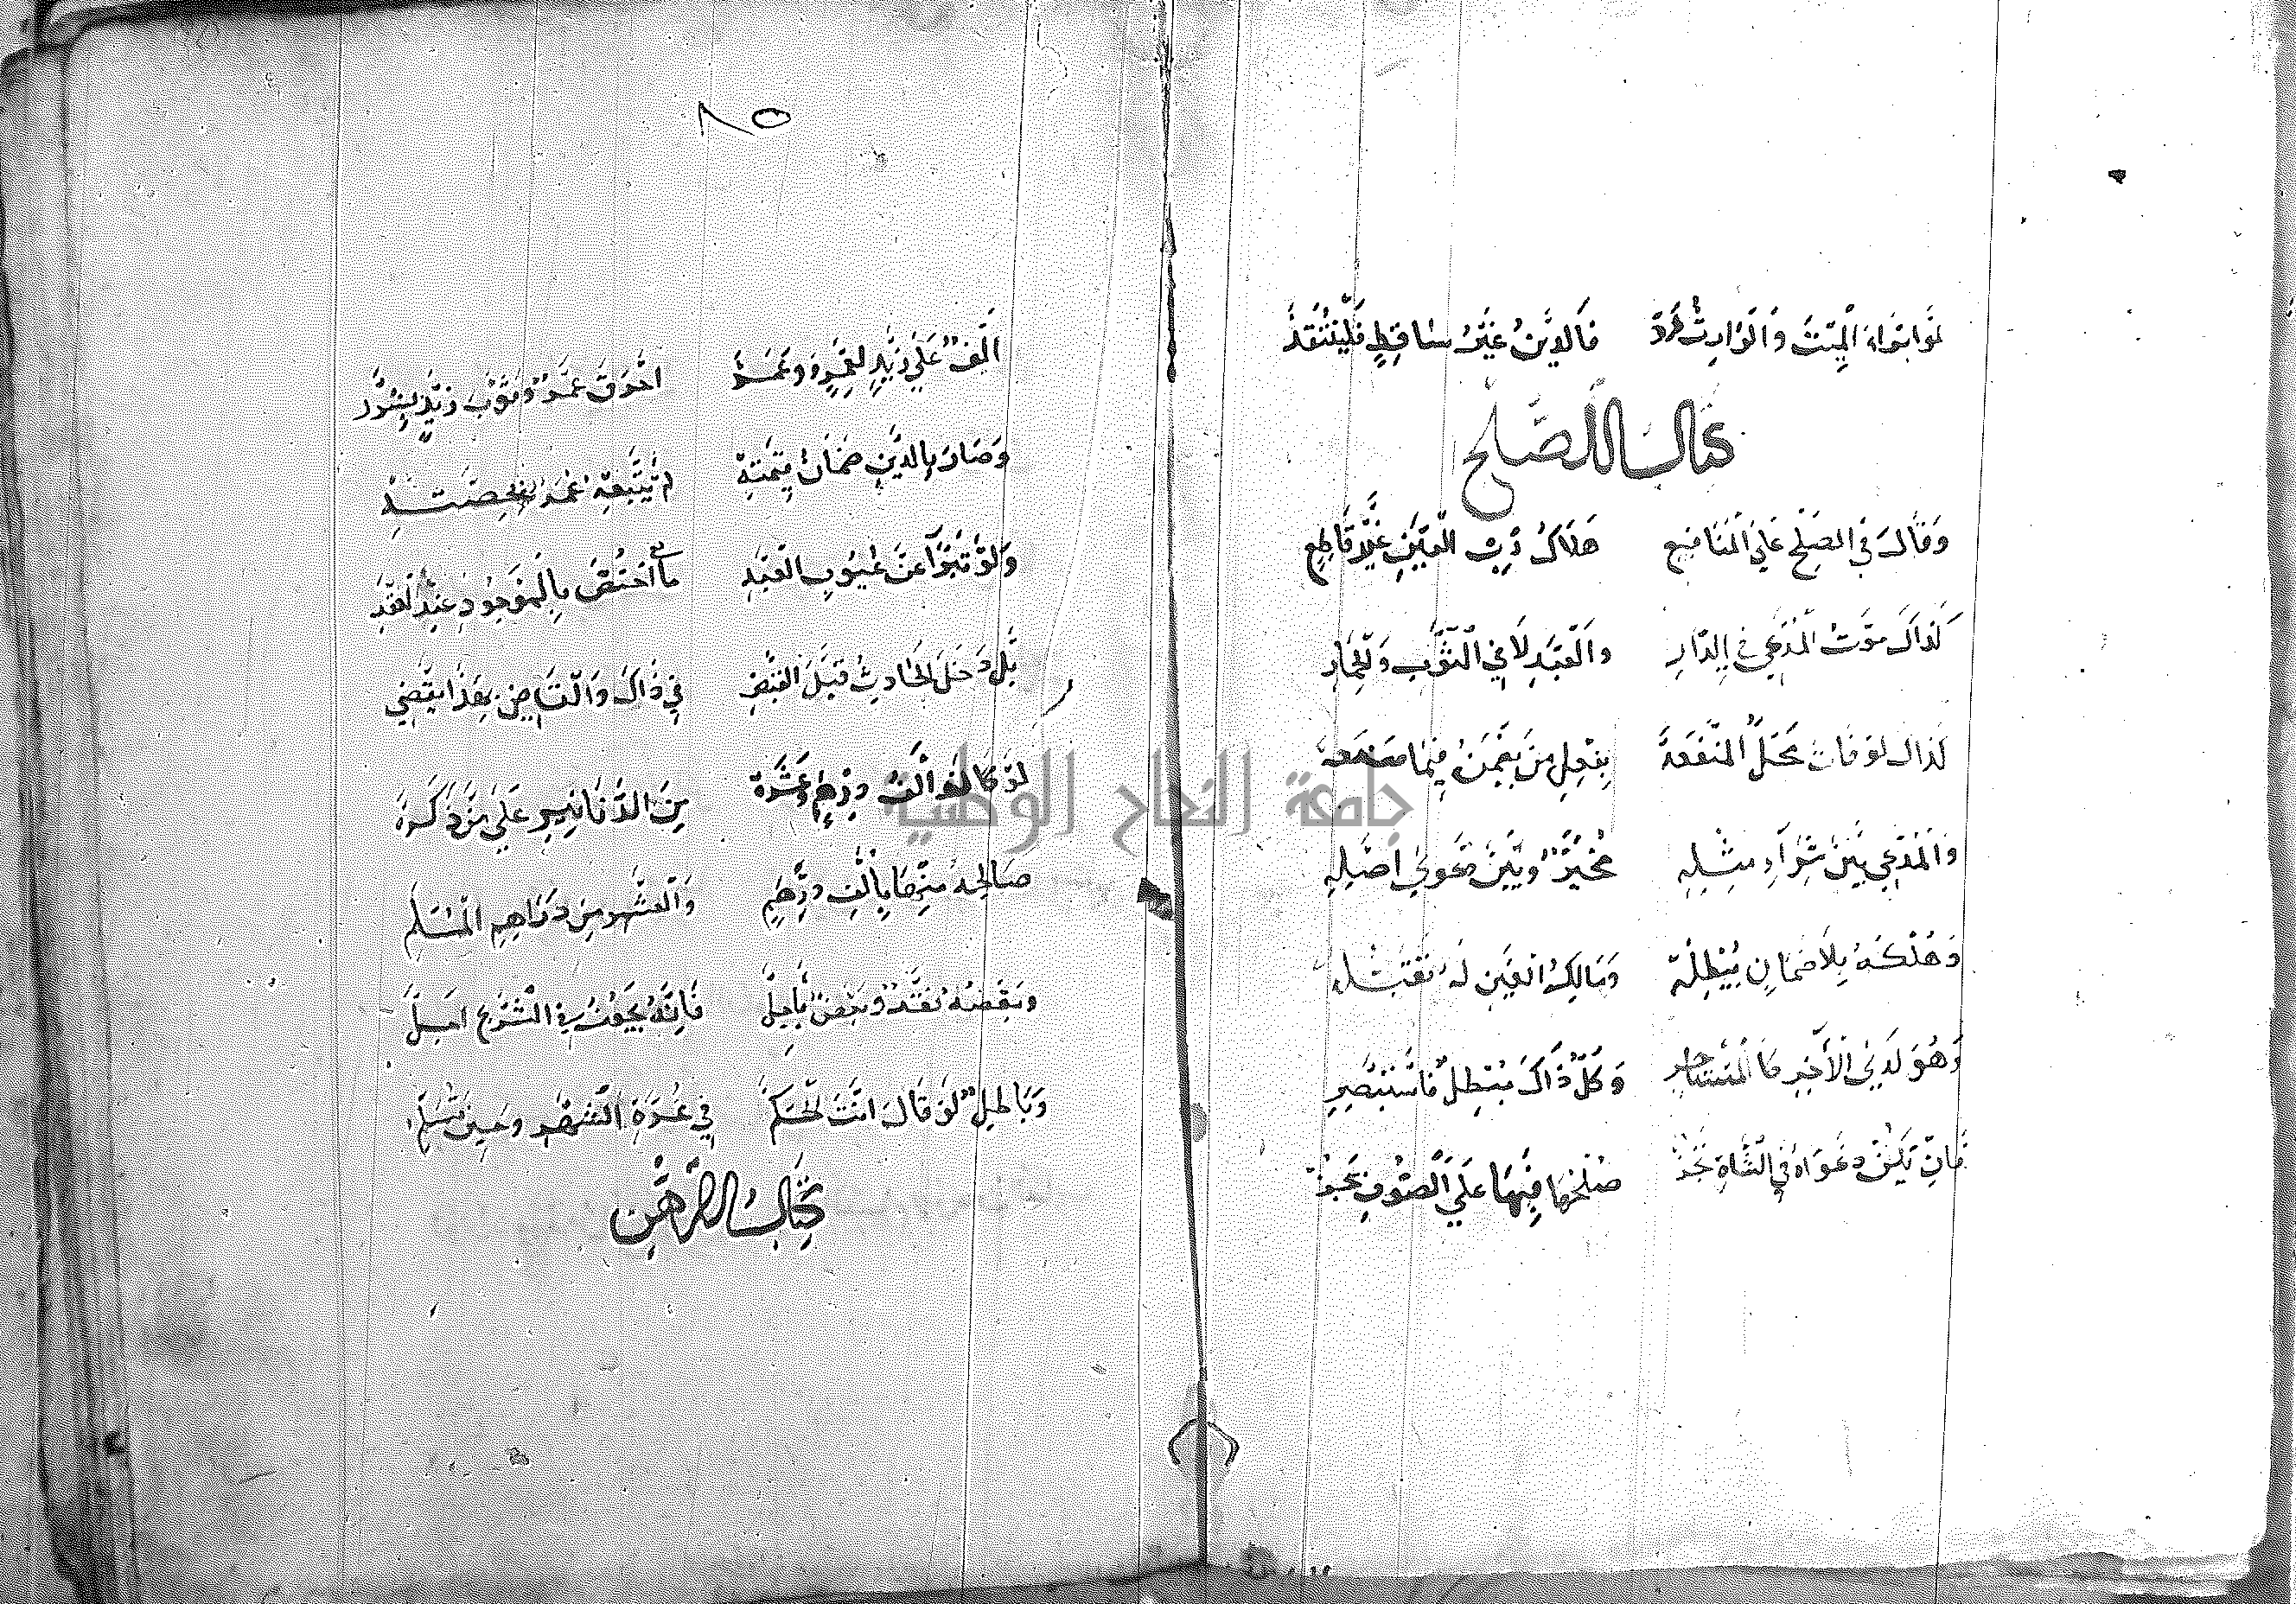 لو ابراء الميت والوارث رد فالدين غير ساقط فلينتقد
كتاب الصلح
وقال في الصلح على المنافع هلاك ذي العين غير قاطع
كذاك موت المدعي في الدار والعبد لا في الثوب والحمار
كذاك لو فات محل المنفعة بفعل من يضمن فيما معه
والمدعي بين شراء مثله مخير وبين دعوى اصله
وهلكه بلا ضمان يبطله ومالك العين له
وهو لدى الأخير كالمستاجر وكل ذاك مبطل فاستبصر
فان تكن دعواه في الشاة تجز صلحها فيها على الصوف يجز
٨٥
الف على زيد لعمرو وعمر احرق عمرو ثوب زيد
وصار بالدين ضمان قيمته لم يتبعه عمر بحصته
ولو تبرا عن عيوب العبد ما اختص بالموجود عند العقد
بل دخل الحادث قبل القبض في ذاك والقاضي بهذا يقضي
لو كان الف درهم وعشرة من الدنانير على من ذكره
صالحه منها بالف درهم والعشر من دراهم المسلم
وبعضه نقد وبعض باجل فانه يجوز في الشرع اجل
وباطل لو قال انت الحكم في غرة الشهر وحين تسلم
كتاب الرهن
جامعة النجاح الوطنية